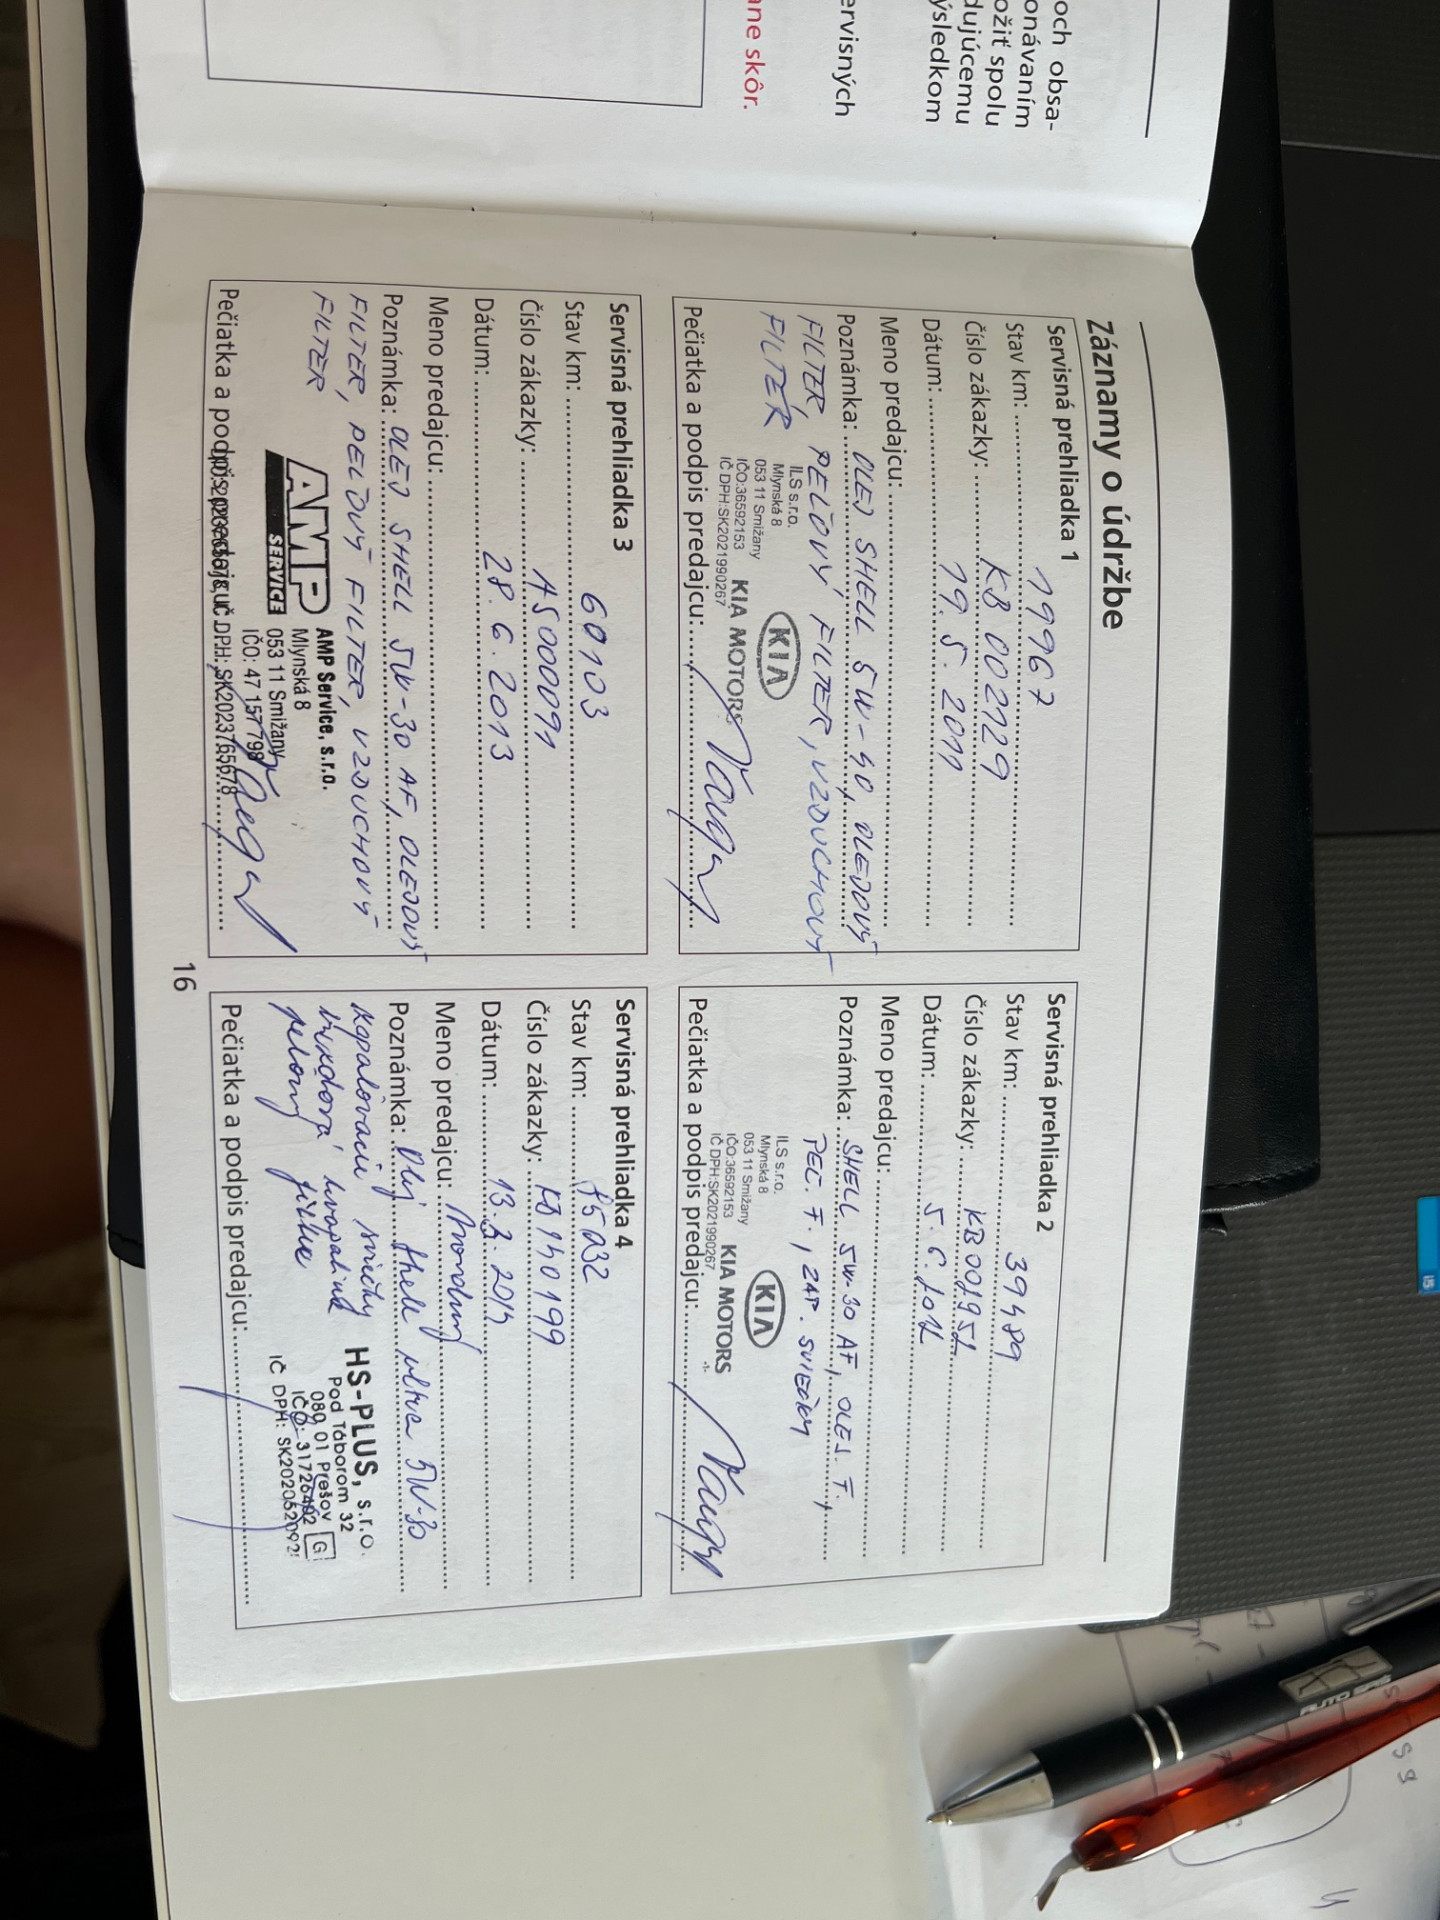 och obsa-
onávaním
ožiť spolu
dujúcemu
ýsledkom
ervisných
ane skôr.
Záznamy o údržbe
Servisná prehliadka 1
Stav km: 19967
Číslo zákazky: KB 002129
Dátum: 19. 5. 2011
Meno predajcu:
Poznámka: OLEJ SHELL 5W-40, OLEJOVÝ
FILTER, PEĽOVÝ FILTER, VZDUCHOVÝ
FILTER
ILS s.r.o.
Mlynská 8
053 11 Smižany
IČO:36592153
IČ DPH:SK2021990267
KIA
KIA MOTORS
Pečiatka a podpis predajcu:
Servisná prehliadka 2
Stav km: 39489
Číslo zákazky: KB001951
Dátum: 5. 6. 2012
Meno predajcu:
Poznámka: SHELL 5W-30 AF, OLEJ. F.,
PEC. F., ZAP. SVIEČKY
ILS s.r.o.
Mlynská 8
053 11 Smižany
IČO:36592153
IČ DPH:SK2021990267
KIA
KIA MOTORS
-1-
Pečiatka a podpis predajcu:
Servisná prehliadka 3
Stav km: 60103
Číslo zákazky: A5000091
Dátum: 28. 6. 2013
Meno predajcu:
Poznámka: OLEJ SHELL 5W-30 AF, OLEJOVÝ
FILTER, PEĽOVÝ FILTER, VZDUCHOVÝ
FILTER
AMP
SERVICE
AMP Service, s.r.o.
Mlynská 8
053 11 Smižany
IČO: 47 157 798
IČ DPH: SK2023765678
Pečiatka a podpis predajcu:
Servisná prehliadka 4
Stav km: 75032
Číslo zákazky: KB140199
Dátum: 13. 3. 2014
Meno predajcu:
Poznámka: Olej Shell ultra 5W-30
zapaľovacie sviečky
brzdová kvapalina
pelový filter
HS-PLUS, s.r.o.
Pod Táborom 32
080 01 Prešov
IČO: 31726402
G
IČ DPH: SK2020520921
Pečiatka a podpis predajcu:
16